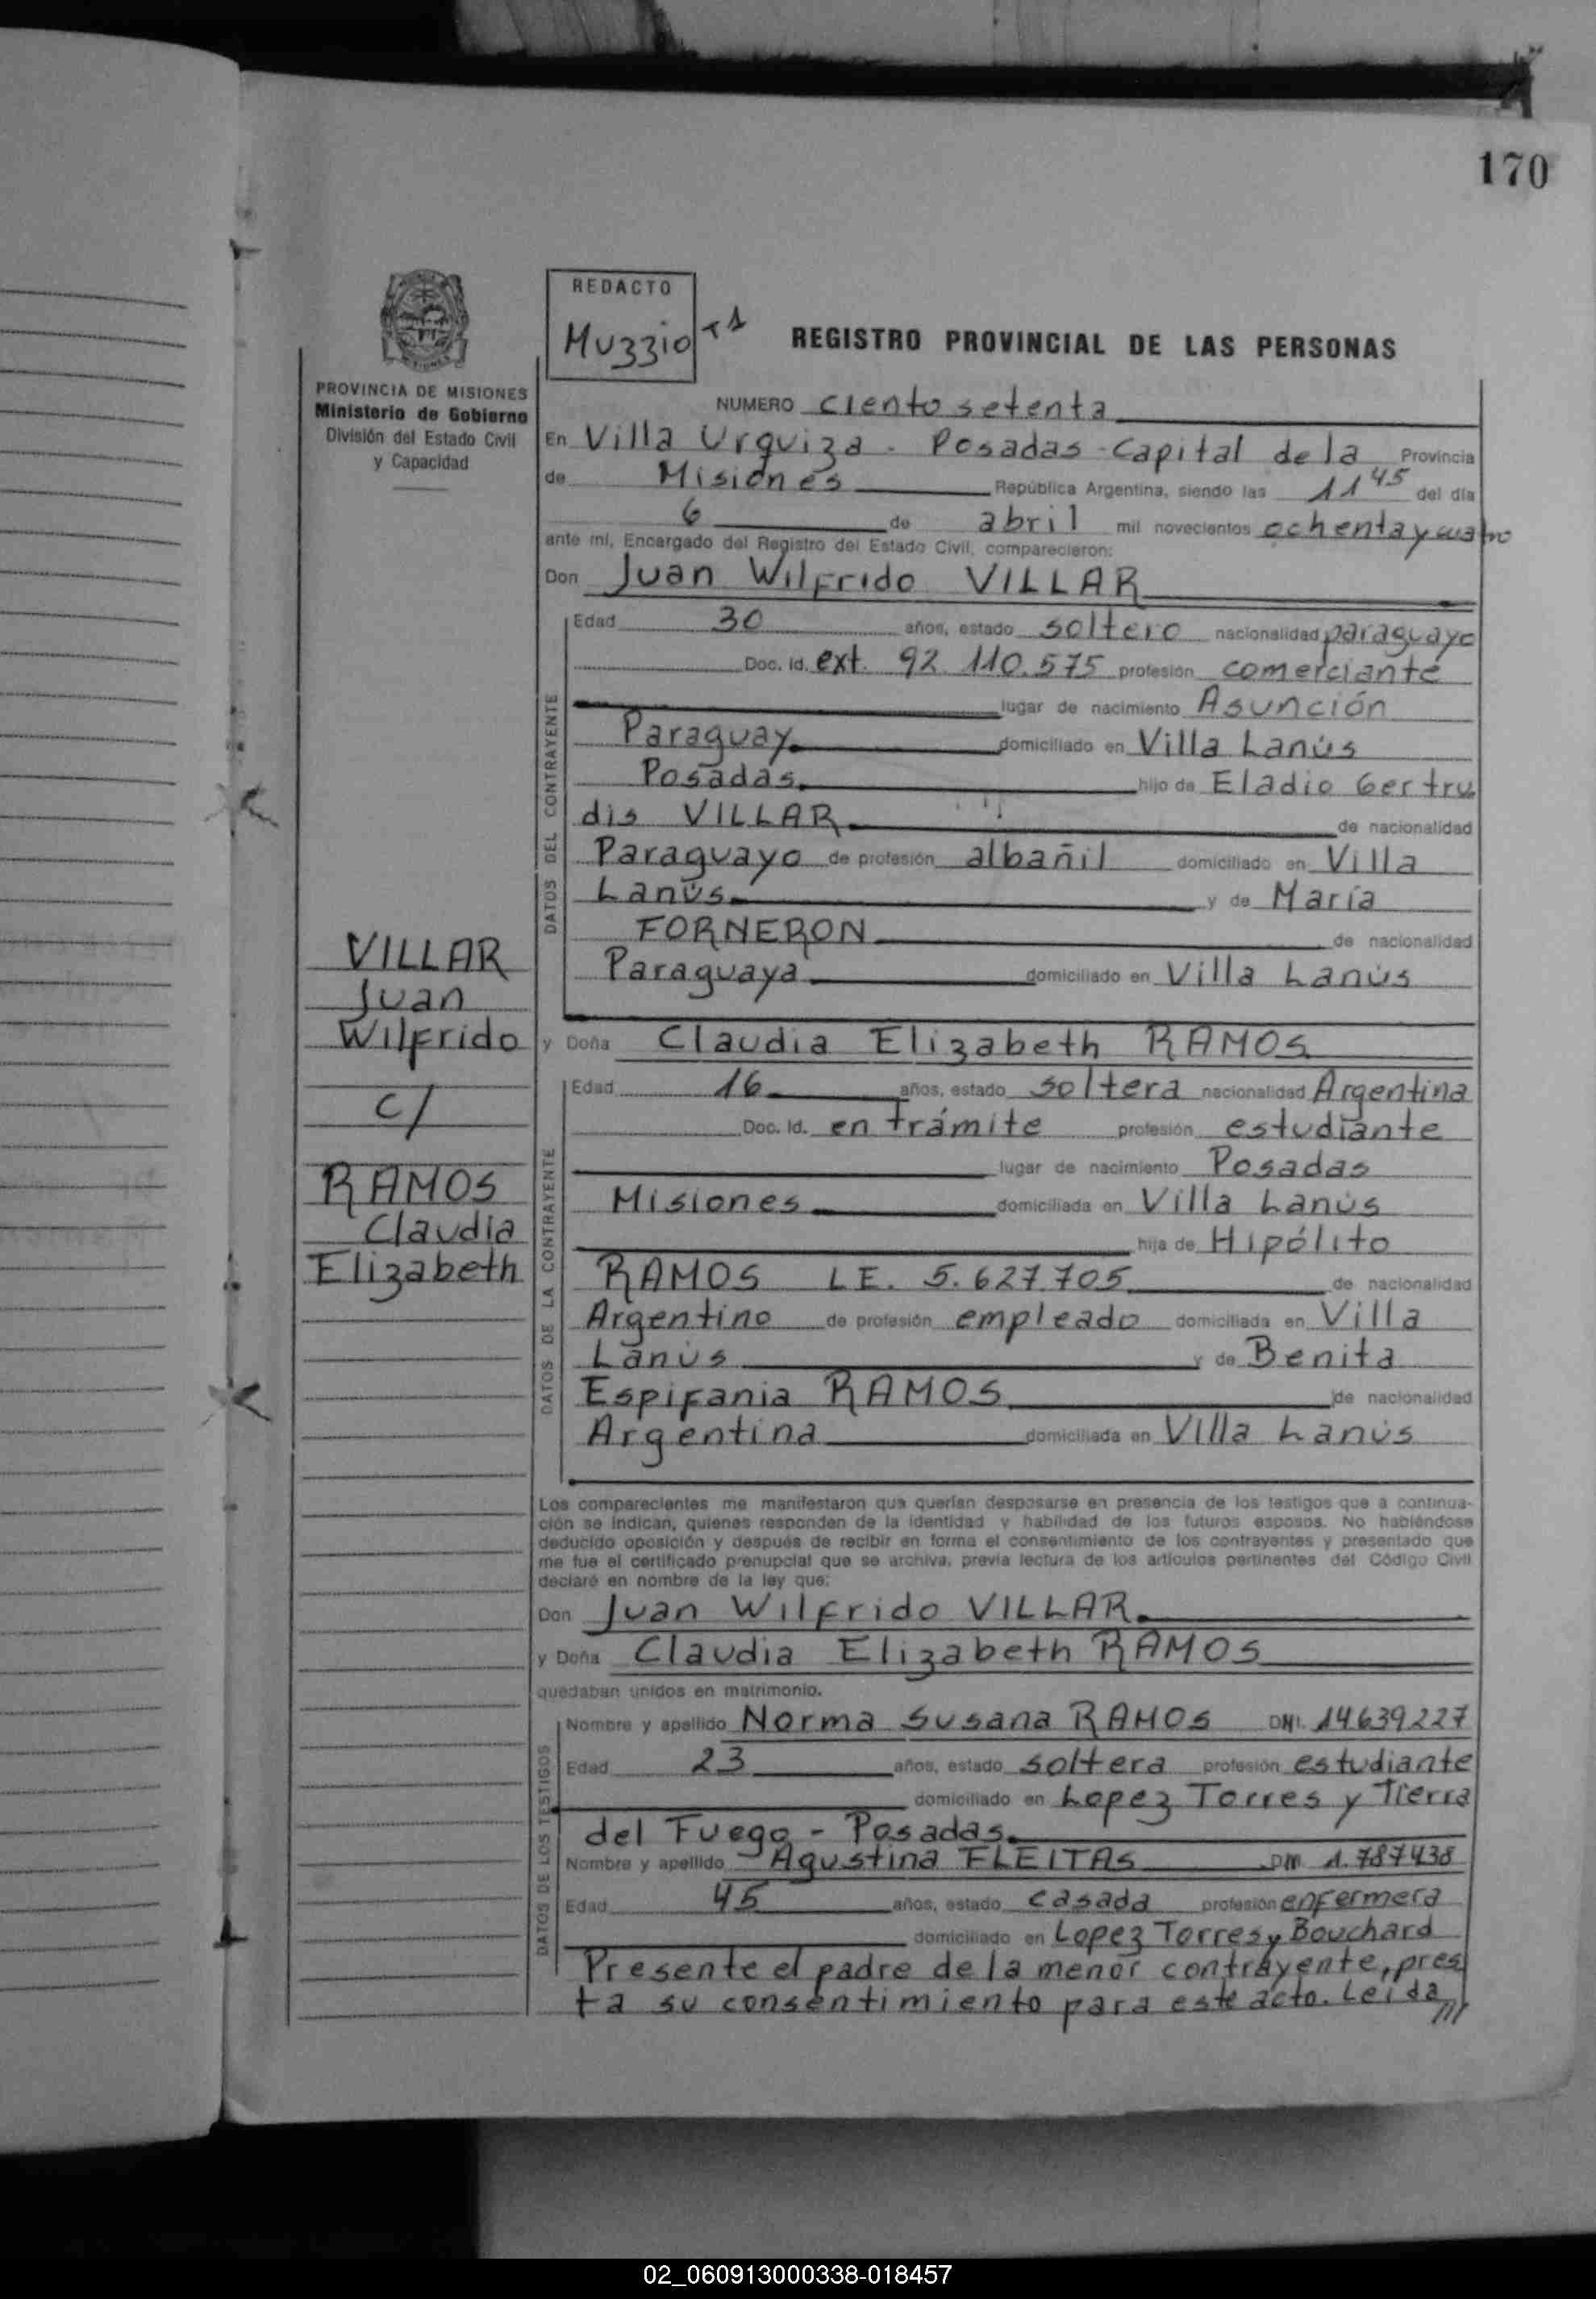 170
REDACTO
Muzzio
REGISTRO PROVINCIAL DE LAS PERSONAS
PROVINCIA DE MISIONES
Ministerio de Gobierno
División del Estado Civil
y Capacidad
NUMERO Ciento setenta
En Villa Urquiza - Posadas - Capital de la Provincia
de Misiones República Argentina, siendo las 11 45 del día
6 de abril mil novecientos ochenta y cuatro
ante mí, Encargado del Registro del Estado Civil, comparecieron:
Don Juan Wilfrido VILLAR
DATOS DEL CONTRAYENTE
Edad 30 años, estado soltero nacionalidad paraguayo
Doc. Id. ext. 92.110.575 profesión comerciante
lugar de nacimiento Asunción
Paraguay. domiciliado en Villa Lanús
Posadas. hijo de Eladio Gertru
dis VILLAR de nacionalidad
Paraguayo de profesión albañil domiciliado en Villa
Lanús. y de María
FORNERON de nacionalidad
Paraguaya domiciliado en Villa Lanús
VILLAR
Juan
Wilfrido
c/
RAMOS
Claudia
Elizabeth
y Doña Claudia Elizabeth RAMOS
DATOS DE LA CONTRAYENTE
Edad 16 años, estado soltera nacionalidad Argentina
Doc. Id. en trámite profesión estudiante
lugar de nacimiento Posadas
Misiones domiciliada en Villa Lanús
hija de Hipólito
RAMOS LE. 5.627.705 de nacionalidad
Argentino de profesión empleado domiciliada en Villa
Lanús y de Benita
Espifania RAMOS de nacionalidad
Argentina domiciliada en Villa Lanús
Los comparecientes me manifestaron que querían desposarse en presencia de los testigos que a continua-
ción se indican, quienes responden de la identidad y habilidad de los futuros esposos. No habiéndose
deducido oposición y después de recibir en forma el consentimiento de los contrayentes y presentado que
me fue el certificado prenupcial que se archiva, previa lectura de los artículos pertinentes del Código Civil
declaré en nombre de la ley que:
Don Juan Wilfrido VILLAR.
y Doña Claudia Elizabeth RAMOS
quedaban unidos en matrimonio.
DATOS DE LOS TESTIGOS
Nombre y apellido Norma Susana RAMOS DNI. 14.639.227
Edad 23 años, estado soltera profesión estudiante
domiciliado en Lopez Torres y Tierra
del Fuego - Posadas.
Nombre y apellido Agustina FLEITAS DNI 1.787438
Edad 45 años, estado casada profesión enfermera
domiciliado en Lopez Torres y Bouchard
Presente el padre de la menor contrayente, pres
ta su consentimiento para este acto. Leída ///
02_060913000338-018457